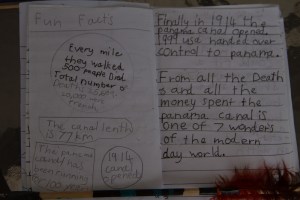 Fun Facts
Every mile
they walked
500 people Died
Total number of
Death
The canal lenth
is 77km
The panama
canal
1914
canal
opened
Finally in 1914 the
panama canal opened.
1999 USA handed over
control to panama.
From all the Death
s and all the
money spent the
panama canal is
one of 7 wonders
of the modern
day world.